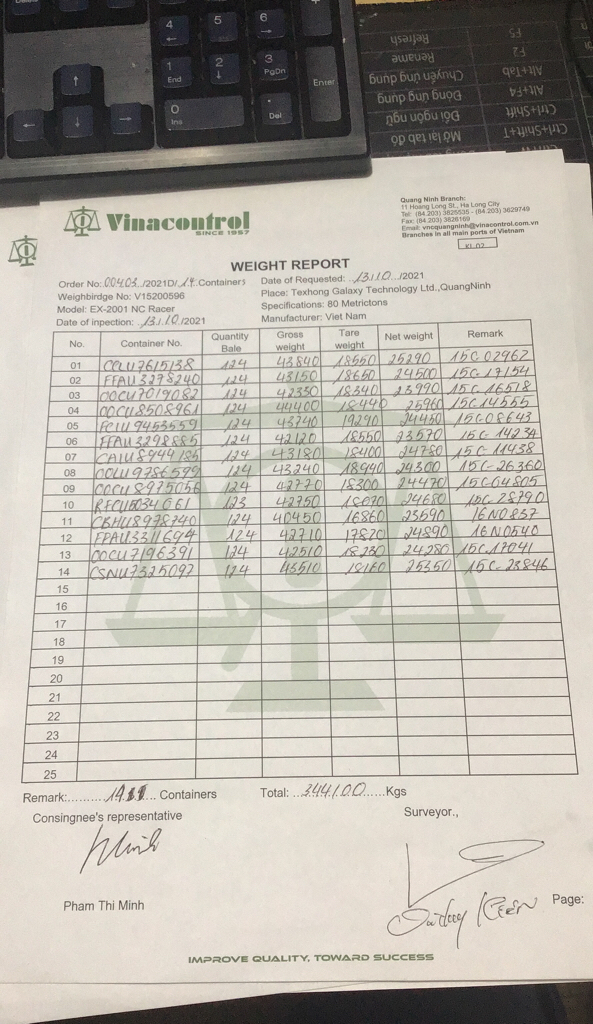 4 5 6
1 End 2 3 PgDn Enter
0 Ins . Del
Refresh F5
Rename F2
Chuyển ứng dụng Alt+Tab
Đóng ứng dụng Alt+F4
Đổi ngôn ngữ Ctrl+Shift
Mở lại tab đó Ctrl+Shift+T
Vinacontrol
SINCE 1957
Quang Ninh Branch:
11 Hoang Long St., Ha Long City
Tel: (84.203) 3825535 - (84.203) 3629749
Fax: (84.203) 3826169
Email: vncquangninh@vinacontrol.com.vn
Branches in all main ports of Vietnam
KL 02
WEIGHT REPORT
Order No: 00403 /2021D/ 14 Containers Date of Requested: 13/10 /2021
Weighbirdge No: V15200596 Place: Texhong Galaxy Technology Ltd.,QuangNinh
Model: EX-2001 NC Racer Specifications: 80 Metrictons
Date of inpection: 13/10 /2021 Manufacturer: Viet Nam
No. Container No. Quantity Bale Gross weight Tare weight Net weight Remark
01 CCLU7615138 124 43840 18550 25290 15C 02962
02 FFAU3278240 124 43150 18650 24500 15C-17154
03 OOCU7019082 124 42330 18340 23990 15C-16518
04 OOCU8508961 124 44400 18440 25960 15C 14555
05 FCIU9453559 124 43740 19290 24450 15C08643
06 FFAU3298885 124 42120 18550 23570 15C-14234
07 CAIU8944185 124 43180 18400 24780 15C-11438
08 OOLU9786599 124 43240 18940 24300 15C-26360
09 OOCU8975056 124 42770 18300 24470 15C04805
10 RFCU5034061 123 42750 18070 24680 15C-28790
11 CBHU8978740 124 40450 16860 23590 16N0837
12 FFAU3311694 124 42710 17820 24890 16N0540
13 OOCU7196391 124 42510 18230 24280 15C17041
14 CSNU7325097 124 43510 18160 25350 15C-23846
15
16
17
18
19
20
21
22
23
24
25
Remark:......... 14 .... Containers Total: ...344100.....Kgs
Consingnee's representative Surveyor.,
Minh
Pham Thi Minh
Page:
IMPROVE QUALITY, TOWARD SUCCESS